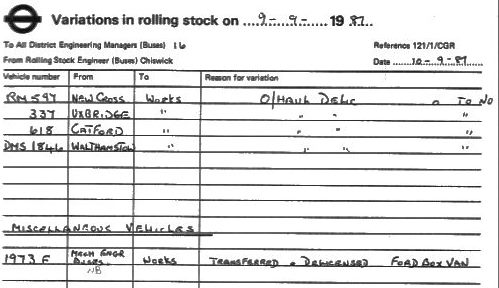 Variations in rolling stock on ...9-.-9-......1987..
To All District Engineering Managers (Buses) 16 Reference 121/1/CGR
From Rolling Stock Engineer (Buses) Chiswick Date ....10-.9-87...
Vehicle number From To Reason for variation
RM 597 New Cross Works O/Haul Delic To No
337 Uxbridge " " " "
618 Catford " " " "
DMS 1846 Walthamstow " " " "
Miscellaneous Vehicles
1973 F Mech Engr Buses. NB Works Transferred Delicensed Ford Box Van